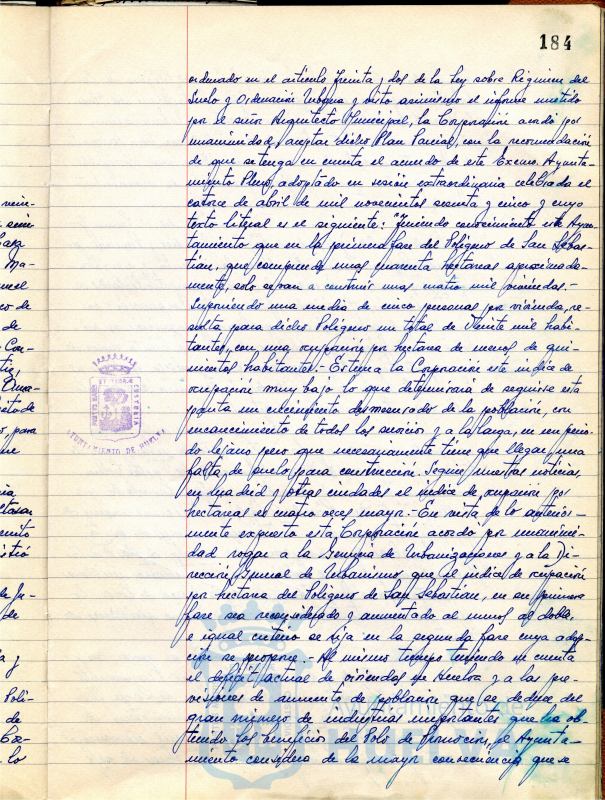 184
ordenado en el artículo treinta y dos de la Ley sobre Régimen del
Suelo y Ordenación Urbana y visto asimismo el informe emitido
por el señor Arquitecto Municipal, la Corporación acordó por
unanimidad, aceptar dicho Plan Parcial, con la recomendación
de que se tenga en cuenta el acuerdo de este Excmo. Ayunta-
miento Pleno, adoptado en sesión extraordinaria celebrada el
catorce de abril de mil novecientos sesenta y cinco y cuyo
texto literal es el siguiente: "Teniendo conocimiento este Ayun-
tamiento que en la primera fase del Polígono de San Sebas-
tián, que comprende unas cuarenta hectareas aproximada-
mente, solo se van a construir unas cuatro mil viviendas.-
Suponiendo una media de cinco personas por vivienda, re-
sulta para dicho Polígono un total de veinte mil habi-
tantes, con una ocupación por hectarea de menos de qui-
nientos habitantes.- Estima la Corporación este indice de
ocupación muy bajo lo que determinaria de seguirse esta
pauta un crecimiento desmesurado de la población, con
encarecimiento de todos los servicios y a la larga, en un perio-
do lejano pero que necesariamente tiene que llegar, una
falta de suelo para construcción. Segun nuestras noticias,
en Madrid y otras ciudades el indice de ocupación por
hectarias es cuatro veces mayor.- En vista de lo anterior-
mente expuesto esta Corporación acordo por unanimi-
dad rogar a la Gerencia de Urbanizaciones y a la Di-
rección General de Urbanismo que el indice de ocupación
por hectarea del Polígono de San Sebastian, en su primera
fase sea reconsiderado y aumentado al menos al doble,
e igual criterio se siga en la segunda fase cuya adop-
ción se propone.- Al mismo tiempo teniendo en cuenta
el deficit actual de viviendas en Huelva y a las pre-
visiones de aumento de población que se deduce del
gran número de industrias importantes que ha ob-
tenido los beneficios del Polo de Promoción, el Ayunta-
miento considera de la mayor consecuencia que se
AYUNTAMIENTO DE HUELVA